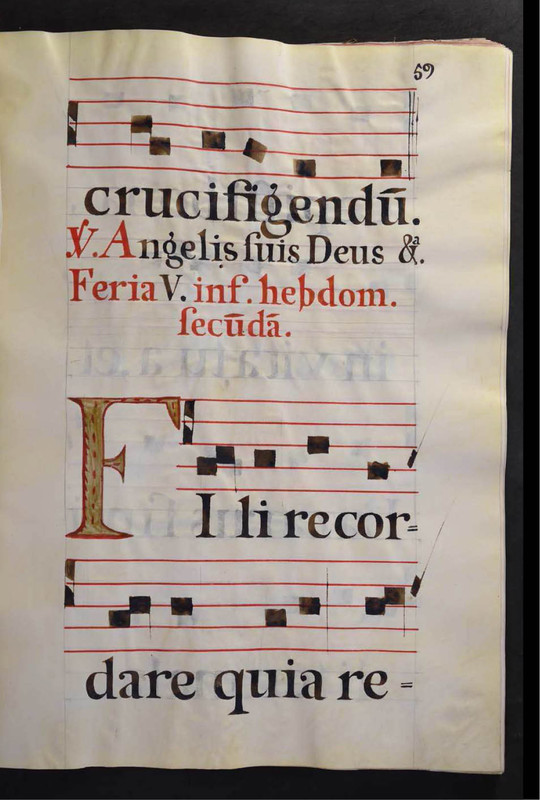 59
crucifigendū.
℣. Angelis ſuis Deus &ª.
Feria V. inf. hebdom.
ſecūdā.
FIli recor=
dare quia re=